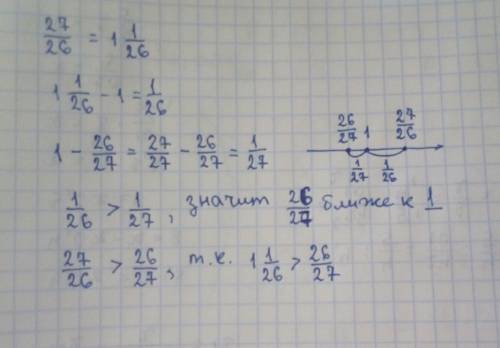 27/26 = 1 1/26
1 1/26 - 1 = 1/26
1 - 26/27 = 27/27 - 26/27 = 1/27
26/27 1 27/26
1/27 1/26
1/26 > 1/27, значит 26/27 ближе к 1
27/26 > 26/27, т.к. 1 1/26 > 26/27